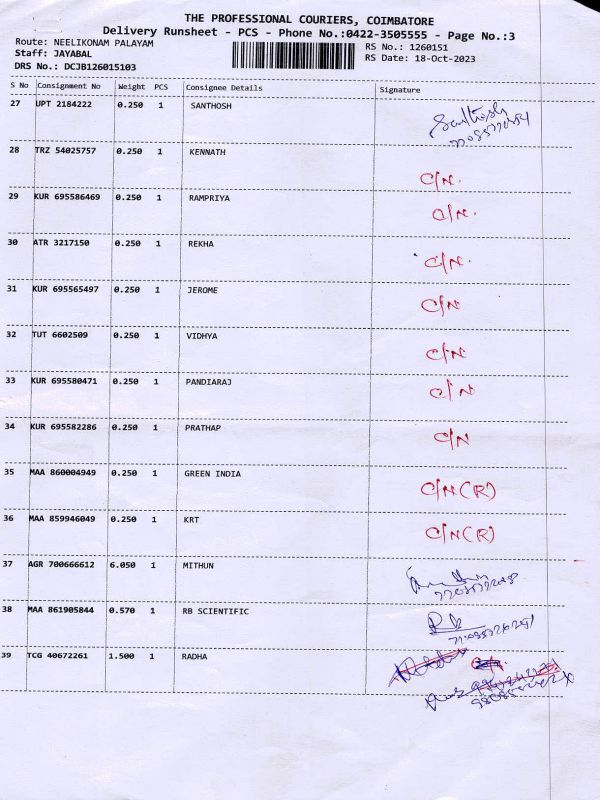 THE PROFESSIONAL COURIERS, COIMBATORE
Delivery Runsheet - PCS - Phone No.:0422-3505555 - Page No.:3
Route: NEELIKONAM PALAYAM
RS No.: 1260151
Staff: JAYABAL
RS Date: 18-Oct-2023
DRS No.: DCJB126015103
S No Consignment No Weight PCS Consignee Details Signature
27 UPT 2184222 0.250 1 SANTHOSH Santhosh
28 TRZ 54025757 0.250 1 KENNATH C/N.
29 KUR 695586469 0.250 1 RAMPRIYA C/N.
30 ATR 3217150 0.250 1 REKHA C/N.
31 KUR 695565497 0.250 1 JEROME C/N
32 TUT 6602509 0.250 1 VIDHYA C/N
33 KUR 695580471 0.250 1 PANDIARAJ C/N
34 KUR 695582286 0.250 1 PRATHAP C/N
35 MAA 860004949 0.250 1 GREEN INDIA C/N(R)
36 MAA 859946049 0.250 1 KRT C/N(R)
37 AGR 700666612 6.050 1 MITHUN
38 MAA 861905844 0.570 1 RB SCIENTIFIC Rb
39 TCG 40672261 1.500 1 RADHA C/N.